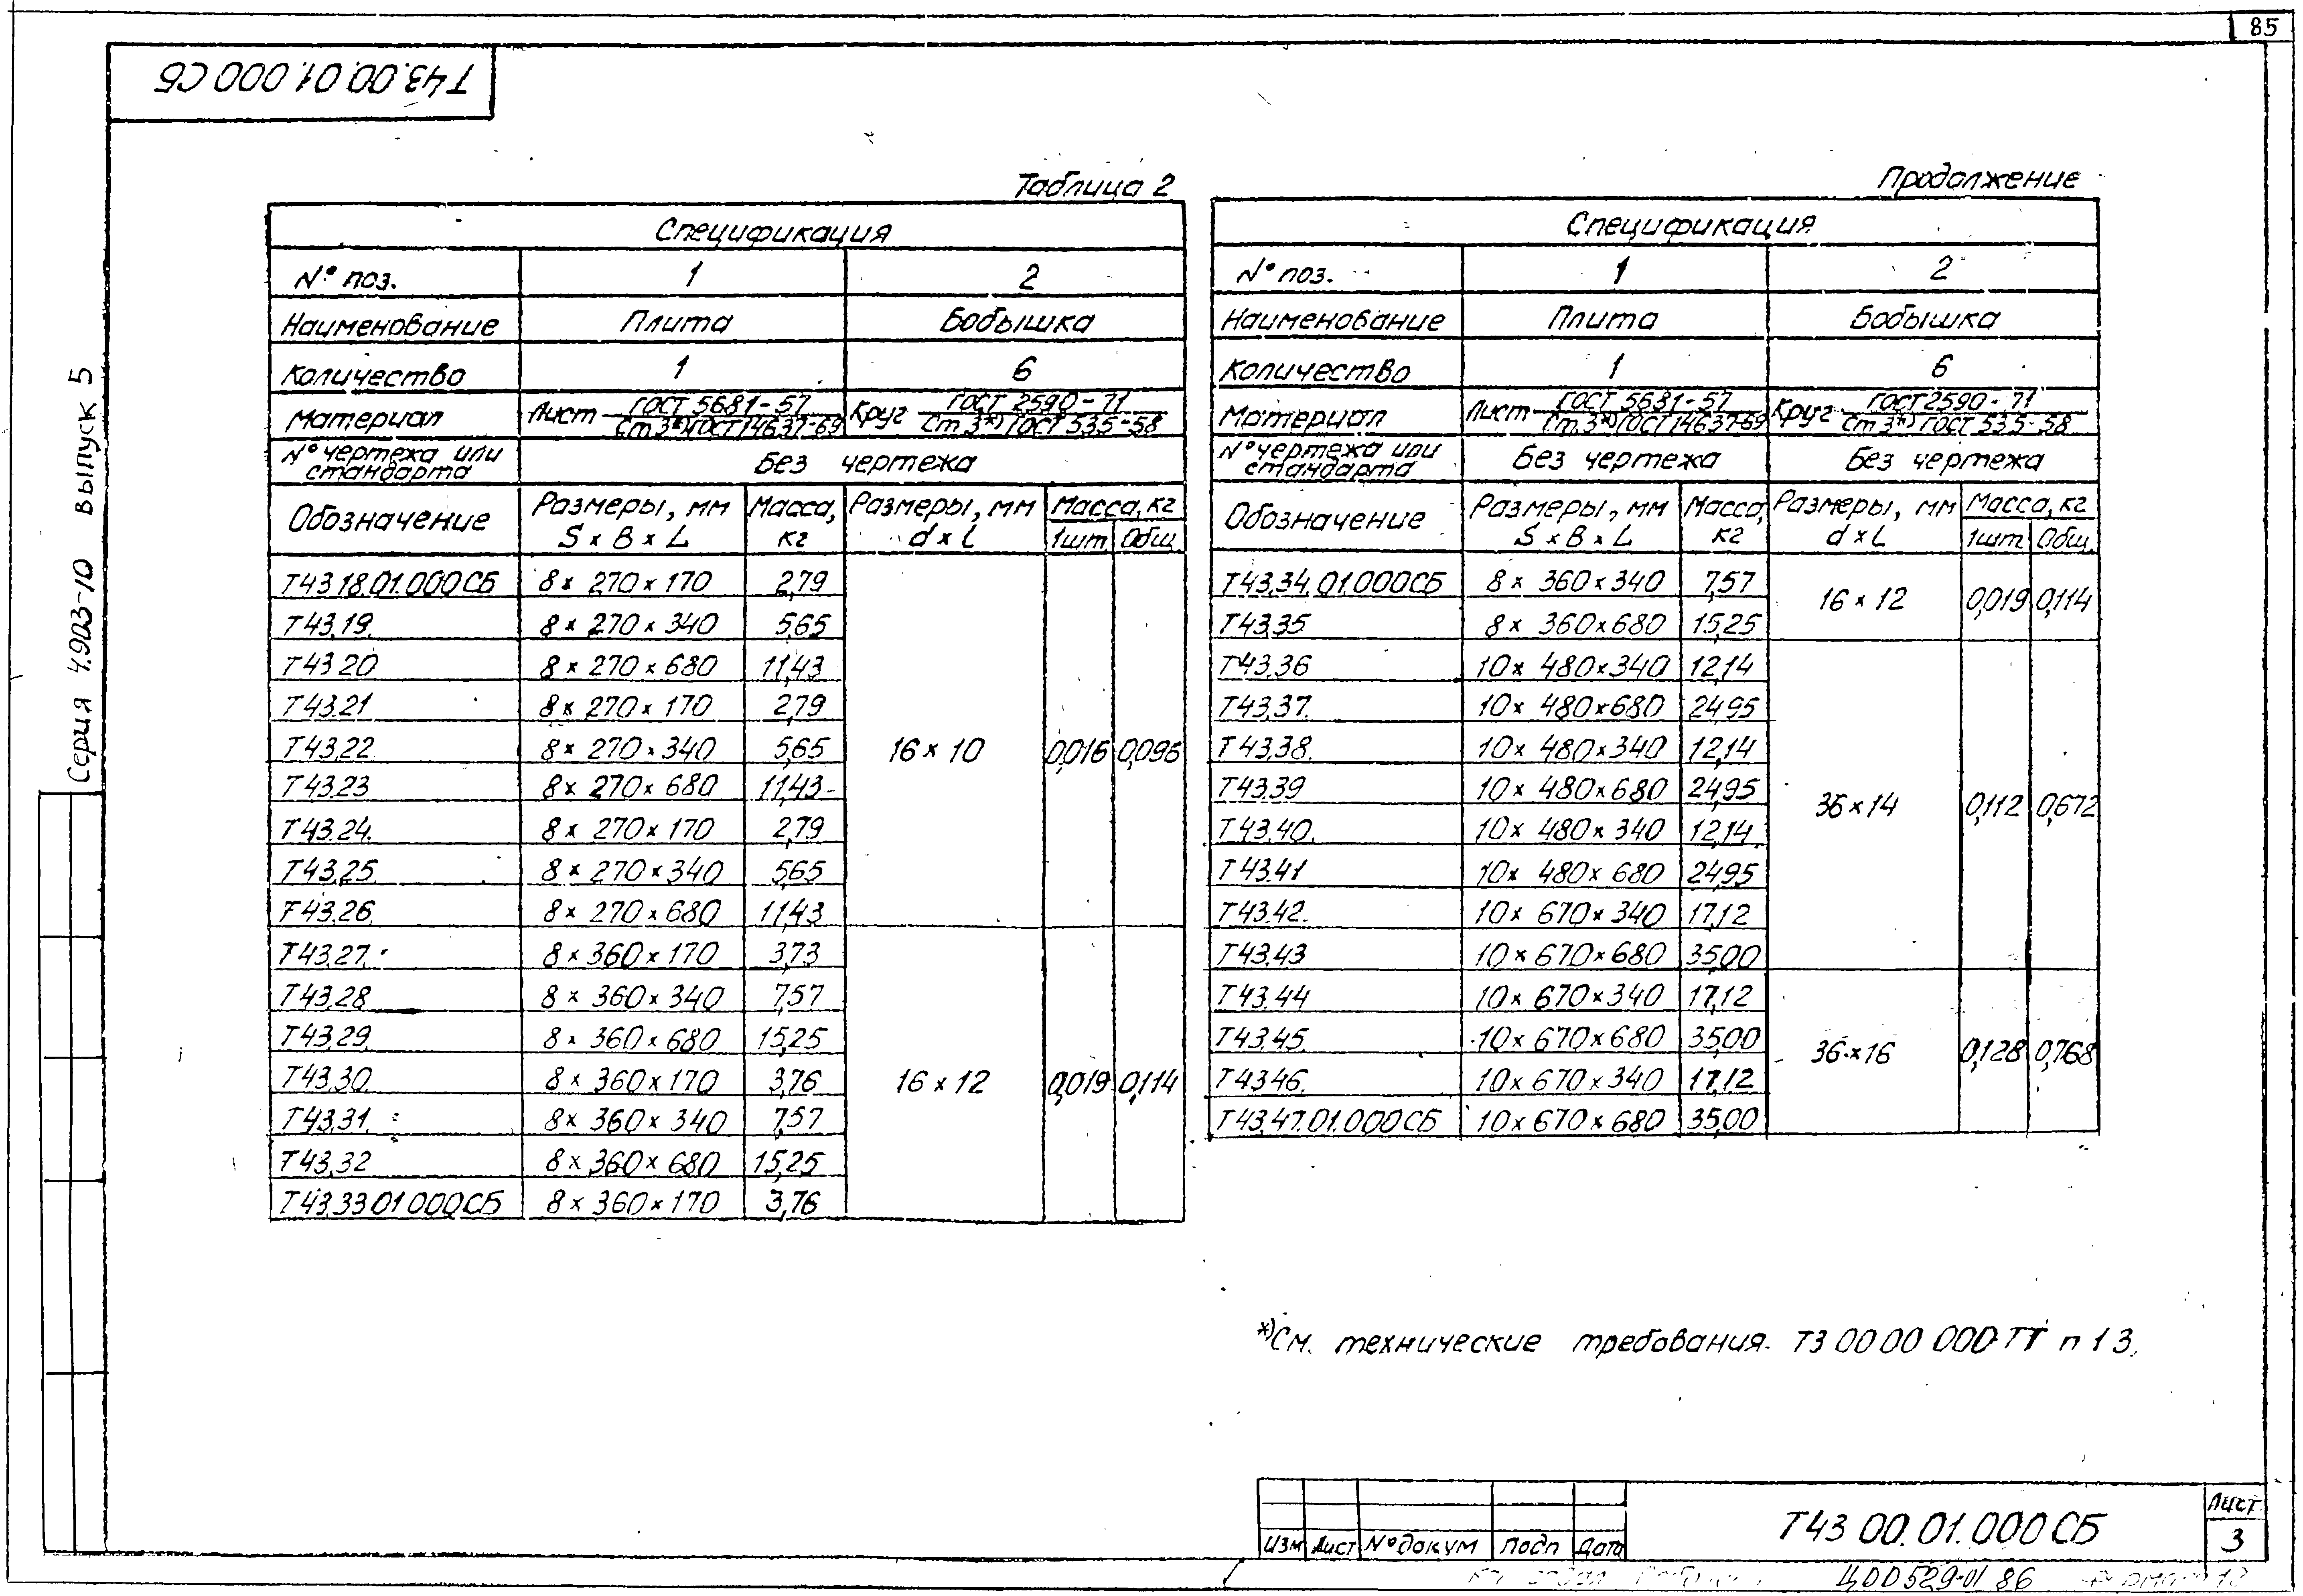 85
Т43.00.01.000 СБ
Серия 4.903-10 выпуск 5
Таблица 2
Спецификация
№ поз. 1 2
Наименование Плита Бобышка
Количество 1 6
Материал Лист ГОСТ 5681-57 / Ст.3*) ГОСТ 14637-69 Круг ГОСТ 2590-71 / Ст.3*) ГОСТ 535-58
№ чертежа или стандарта Без чертежа
Обозначение Размеры, мм S x B x L Масса, кг Размеры, мм d x l Масса, кг 1шт Общ.
Т43.18.01.000СБ 8 x 270 x 170 2,79
Т43.19. 8 x 270 x 340 5,65
Т43.20 8 x 270 x 680 11,43
Т43.21 8 x 270 x 170 2,79
Т43.22 8 x 270 x 340 5,65 16 x 10 0,016 0,096
Т43.23 8 x 270 x 680 11,43
Т43.24. 8 x 270 x 170 2,79
Т43.25 8 x 270 x 340 5,65
Т43.26. 8 x 270 x 680 11,43
Т43.27. 8 x 360 x 170 3,73
Т43.28 8 x 360 x 340 7,57
Т43.29. 8 x 360 x 680 15,25
Т43.30. 8 x 360 x 170 3,76 16 x 12 0,019 0,114
Т43.31. 8 x 360 x 340 7,57
Т43.32 8 x 360 x 680 15,25
Т43.33.01.000СБ 8 x 360 x 170 3,76
Продолжение
Спецификация
№ поз. 1 2
Наименование Плита Бобышка
Количество 1 6
Материал Лист ГОСТ 5681-57 / Ст.3*) ГОСТ 14637-69 Круг ГОСТ 2590-71 / Ст.3*) ГОСТ 535-58
№ чертежа или стандарта Без чертежа Без чертежа
Обозначение Размеры, мм S x B x L Масса, кг Размеры, мм d x l Масса, кг 1шт Общ.
Т43.34.01.000СБ 8 x 360 x 340 7,57 16 x 12 0,019 0,114
Т43.35 8 x 360 x 680 15,25
Т43.36 10 x 480 x 340 12,14
Т43.37. 10 x 480 x 680 24,95
Т43.38. 10 x 480 x 340 12,14
Т43.39 10 x 480 x 680 24,95 36 x 14 0,112 0,672
Т43.40. 10 x 480 x 340 12,14
Т43.41 10 x 480 x 680 24,95
Т43.42. 10 x 670 x 340 17,12
Т43.43 10 x 670 x 680 35,00
Т43.44 10 x 670 x 340 17,12
Т43.45. 10 x 670 x 680 35,00 36 x 16 0,128 0,768
Т43.46. 10 x 670 x 340 17,12
Т43.47.01.000СБ 10 x 670 x 680 35,00
*) См. технические требования Т3 00 00 000 ТТ п 1 3.
Изм Лист № докум Подп Дата
Т43 00.01.000 СБ
Лист
3
ЦОО529-01 86